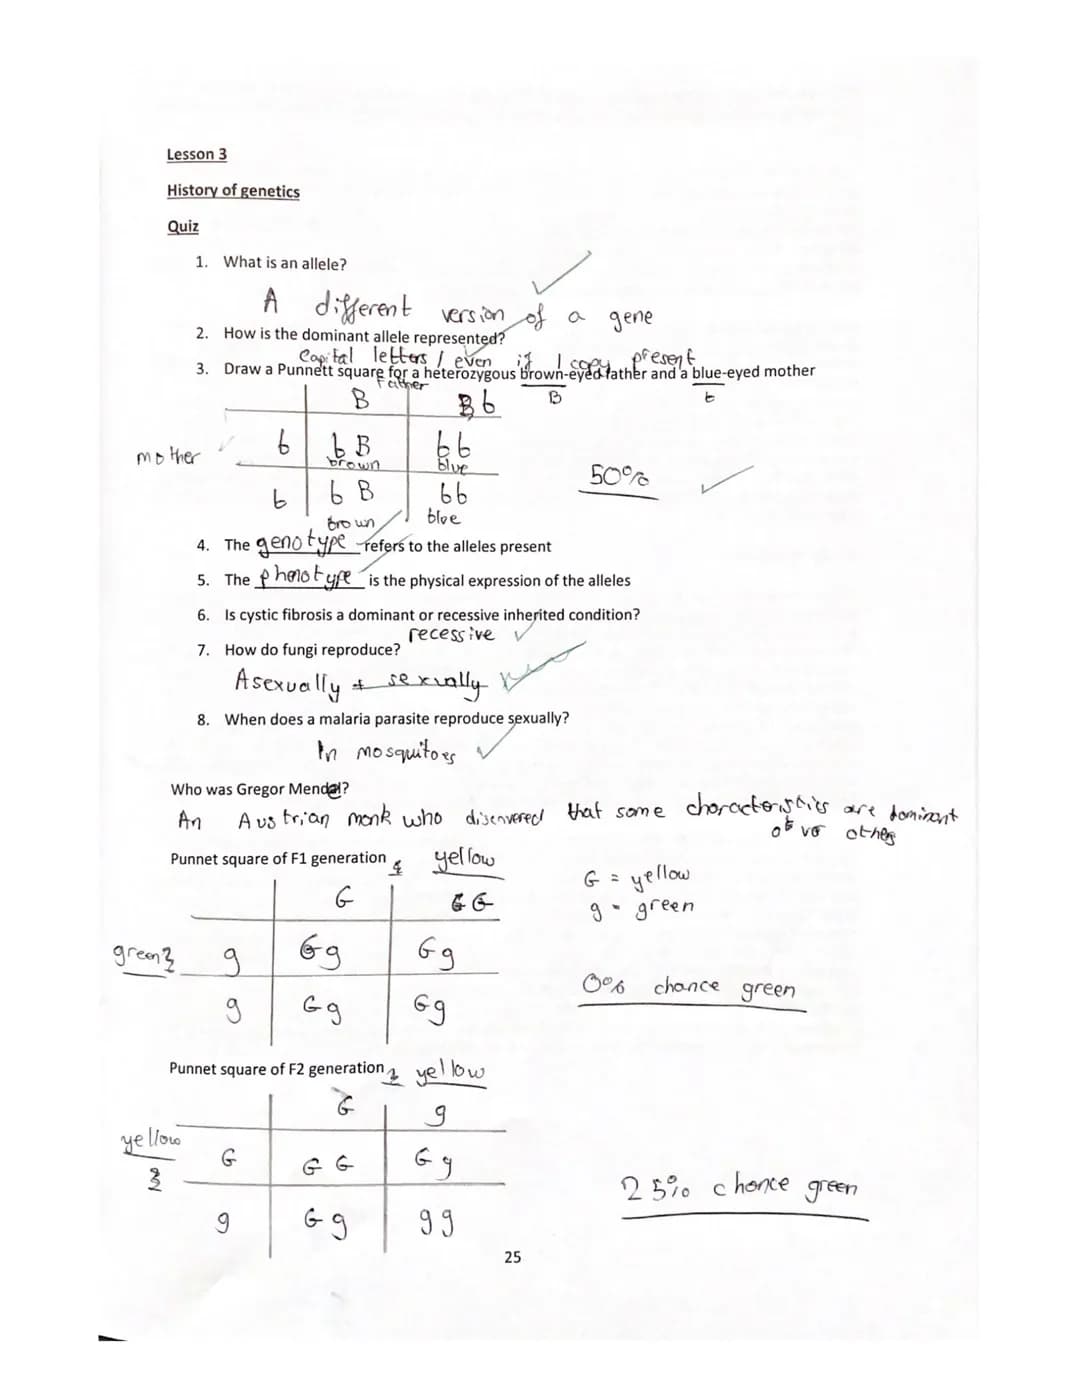 Lesson 3
History of genetics
Quiz
1. What is an allele?
A different version of a gene
2. How is the dominant allele represented?
Capital letters / even if 1 copy present
3. Draw a Punnett square for a heterozygous brown-eyed father and a blue-eyed mother
Father
B b
B b
mother
b bB bb
brown blue
50%
b bB bb
brown blue
4. The genotype refers to the alleles present
5. The phenotype is the physical expression of the alleles
6. Is cystic fibrosis a dominant or recessive inherited condition?
recessive
7. How do fungi reproduce?
Asexually + sexually
8. When does a malaria parasite reproduce sexually?
In mosquitoes
Who was Gregor Mendel?
An Austrian monk who discovered that some characteristics are dominant
others
Punnet square of F1 generation yellow
G = yellow
G G
g - green
green g Gg Gg
0% chance green
g Gg Gg
Punnet square of F2 generation yellow
G g
yellow
G GG Gg
25% chance green
g Gg gg
25